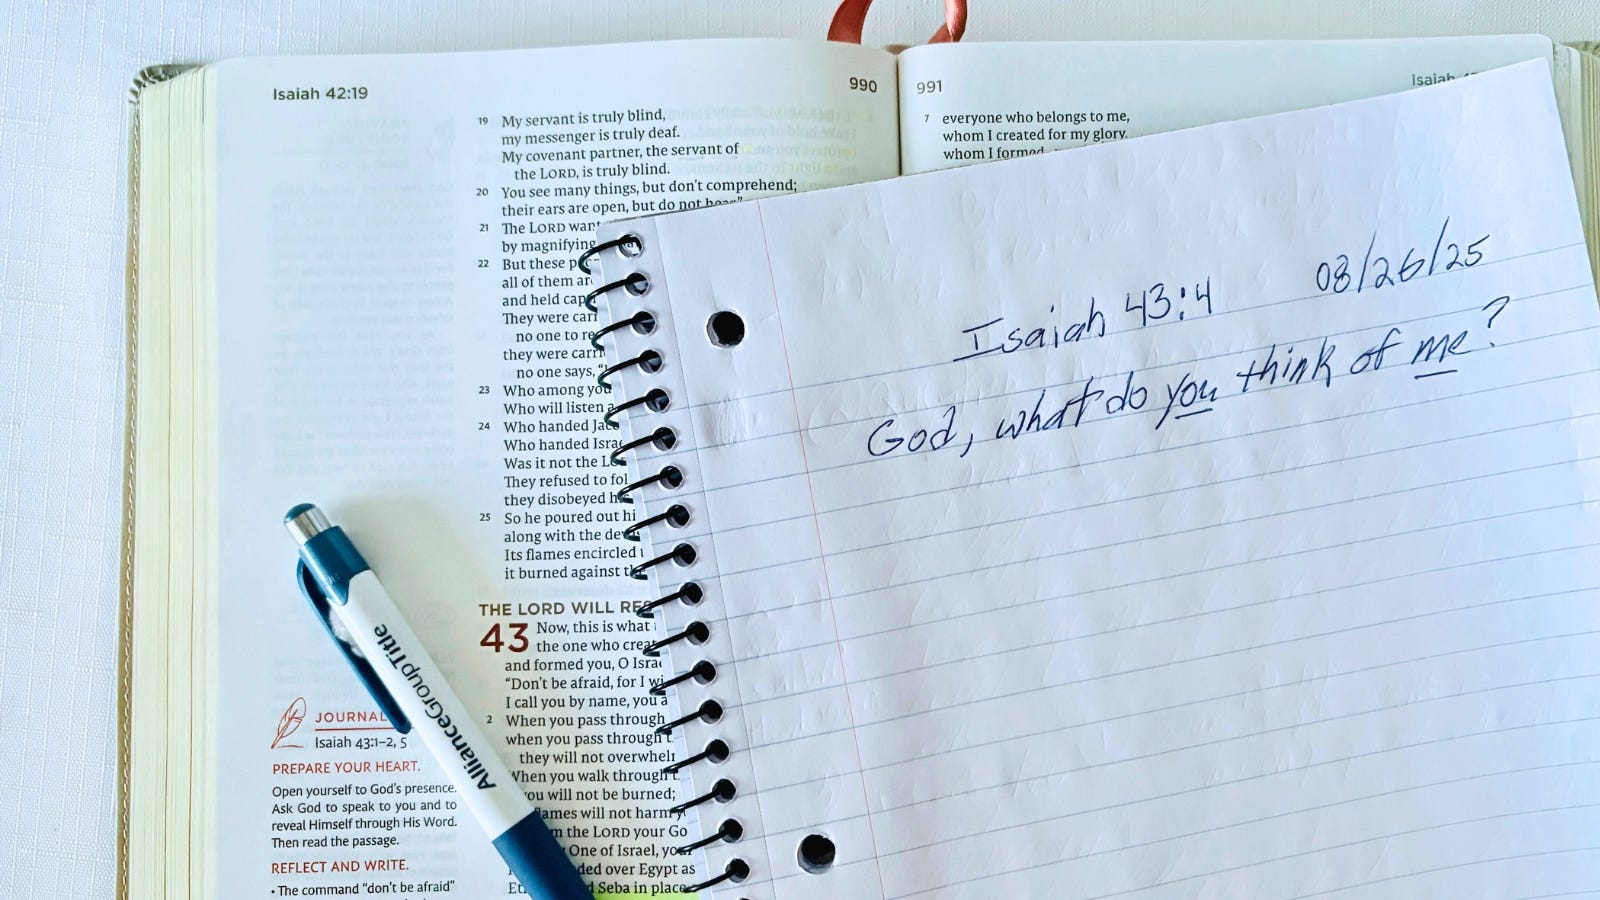 Isaiah 42:19
990
19 My servant is truly blind,
my messenger is truly deaf.
My covenant partner, the servant of
the LORD, is truly blind.
20 You see many things, but don't comprehend;
their ears are open, but do not hear."
21 The LORD
by magnifying
22 But these
all of them
and held
They were
no one to
they were
no one says,
23 Who among you
Who will listen
24 Who handed
Who handed
Was it not the
They refused to
they disobeyed
25 So he poured out
along with the
Its flames encircled
it burned against
THE LORD WILL
43 Now, this is what
the one who
and formed you, O
"Don't be afraid, for I
I call you by name, you
2 When you pass through
when you pass through
they will not
When you walk through
you will not be burned;
flames will not harm
the LORD your
One of Israel,
over Egypt as
Seba in place
JOURNAL
Isaiah 43:1–2, 5
PREPARE YOUR HEART.
Open yourself to God's presence.
Ask God to speak to you and to
reveal Himself through His Word.
Then read the passage.
REFLECT AND WRITE.
• The command "don't be afraid"
AllianceGroupTitle
991
Isaiah
7 everyone who belongs to me,
whom I created for my glory,
whom I formed
Isaiah 43:4 08/26/25
God, what do you think of me?